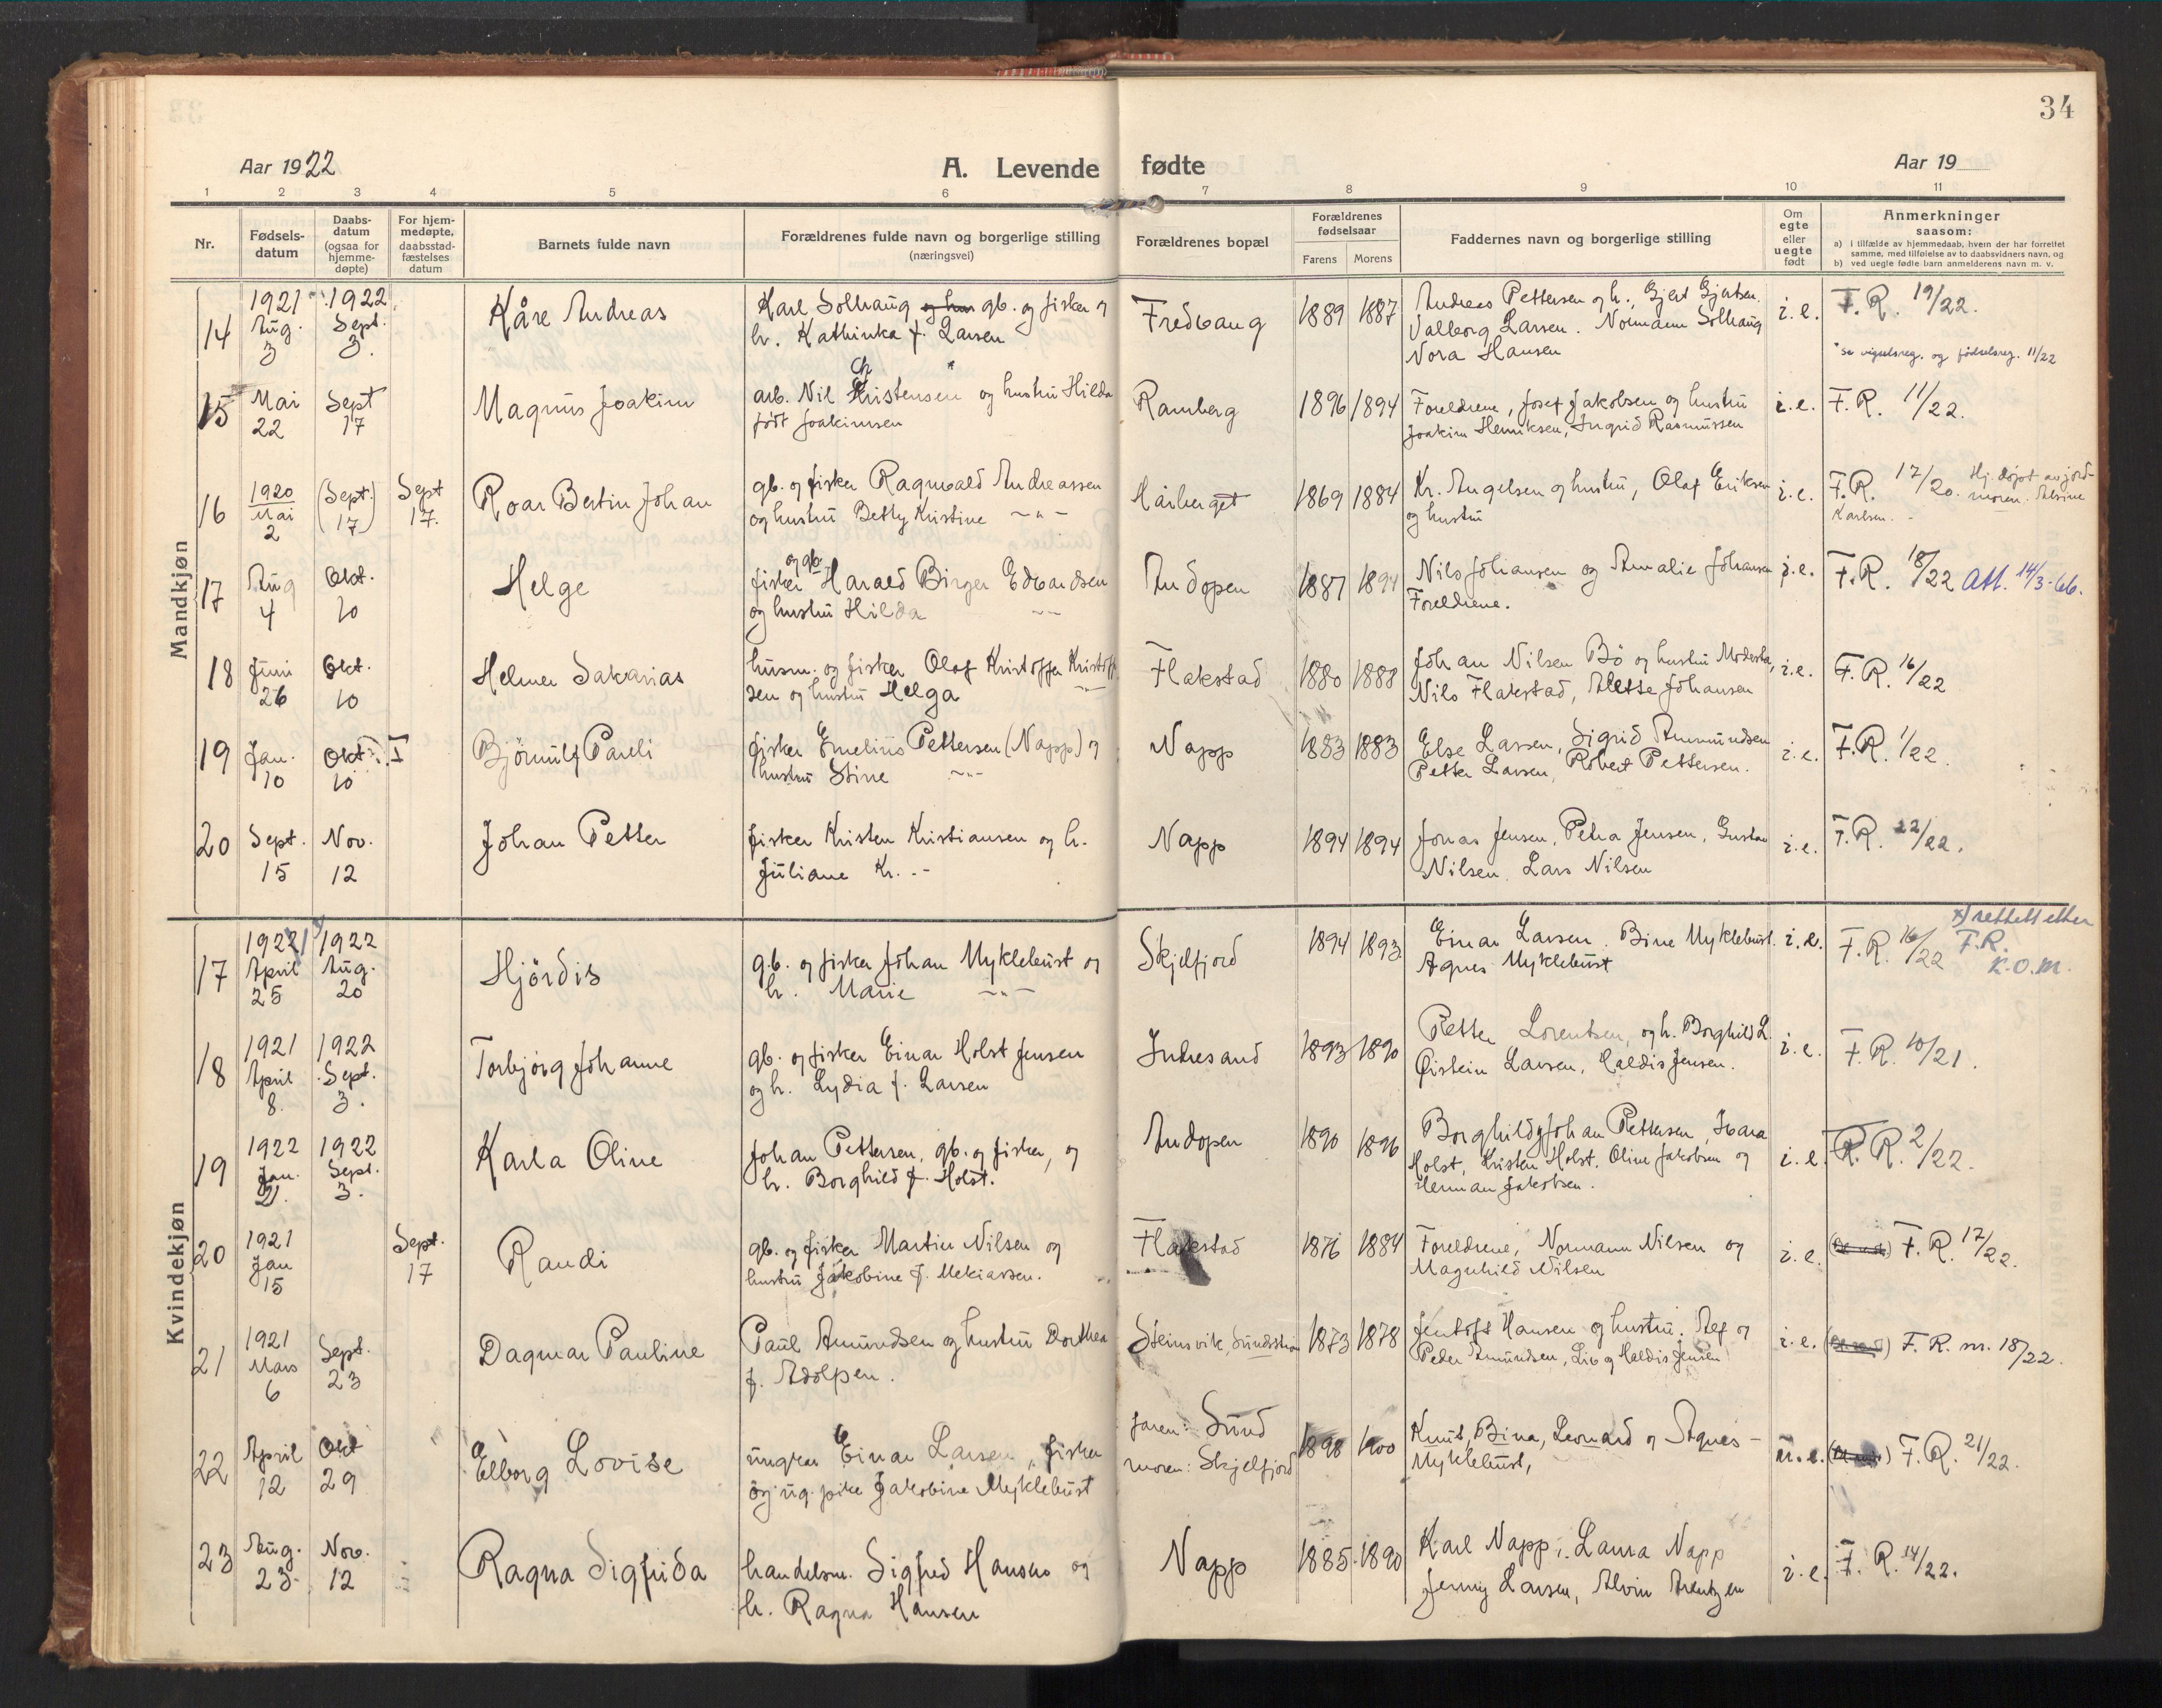 34
Aar 1922 A. Levende fødte Aar 19
1 2 3 4 5 6 7 8 9 10 11
Nr.
Fødsels-
datum
Daabs-
datum
(ogsaa for
hjemme-
døpte)
For hjem-
medøpte,
daabsstad-
fæstelses
datum
Barnets fulde navn
Forældrenes fulde navn og borgerlige stilling
(næringsvei)
Forældrenes bopæl
Forældrenes
fødselsaar
Farens Morens
Faddernes navn og borgerlige stilling
Om
egte
eller
uegte
født
Anmerkninger
saasom:
a) i tilfælde av hjemmedaab, hvem der har forrettet
samme, med tilføielse av to daabsvidners navn, og
b) ved uegte fødte barn anmelderens navn m. v.
Mandkjøn
14
1921
Aug.
3
1922
Sept.
3.
Kåre Andreas
Karl Solhaug og hun gb. og fisker og
h. Kathinka f. Larsen
Fredvang
1889 1887
Andreas Pettersen og h., Gjert Gjertsen.
Valborg Larsen. Normann Solhaug
Nora Hansen
i. e.
F. R. 19/22.
* se vigselsreg. og fødselsreg. 11/22
15
Mai
22
Sept
17
Magnus Joakim
Ch
arb. Nil Kristensen * og hustru Hilda
født Joakimsen
Ramberg
1896 1894
Foreldrene, Josef Jakobsen og hustru
Joakim Henriksen, Ingrid Rasmussen
i. e.
F. R. 11/22.
16
1920
Mai
2
(Sept.)
17
Sept
17.
Roar Bertin Johan
gb. og fisker Ragnvald Andreassen
og hustru Betty Kristine — " —
Hårberget
1869 1884
Kr. Angelsen og hustru, Olaf Eriksen
og hustru
i. e.
F. R. 17/20. Hj. døpt av jord-
moren. Alvine
Karlsen. -
17
Aug
4
Okt.
10
Helge
og gb.
fisker Harald Birger Edvardsen
og hustru Hilda — " —
Andopen
1887 1894
Nils Johansen og Amalie Johansen
Foreldrene.
i. e.
F. R. 18/22 Att. 14/3-66.
18
Juni
26
Okt.
10
Helmer Sakarias
husm. og fisker Olaf Kristoffer Kristoff
sen og hustru Helga — " —
Flakstad
1880 1888
Johan Nilsen Bö og hustru Modesta,
Nils Flakstad, Alette Johansen
i. e.
F. R. 16/22
19
Jan.
10
Okt.
10
I
Björnulf Pauli
fisker Emelius Pettersen (Napp) og
hustru Stine — " —
Napp
1883 1883
Else Larsen, Sigrid Ammundsen
Petter Larsen, Robert Pettersen.
i. e.
F. R. 1/22.
20
Sept.
15
Nov.
12
Johan Petter
fisker Kristen Kristiansen og h.
Juliane Kr. . -
Napp
1894 1894
Jonas Jensen, Petra Jensen, Gustav
Nilsen, Lars Nilsen
i. e.
F. R. 22/22.
Kvindekjøn
17
1922
April
25
1922
Aug.
20
Hjördis
g.b. og fisker Johan Myklebust og
h. Marie — " —
Skjelfjord
1894 1893
Einar Larsen. Bine Myklebust.
Agnes Myklebust
i. e.
F. R. 16/22
x) rettett etter
F. R.
K. O. M.
18
1921
April
8.
1922
Sept.
3.
Torbjørg Johanne
gb. og fisker Einar Holst Jensen
og h. Lydia f. Larsen
Indresand
1893 1890
Petter Lorentsen, og h. Borghild L.
Øistein Larsen, Haldis Jensen.
i. e.
F. R. 10/21.
19
1922
Jan.
21.
1922
Sept.
3.
Karla Oline
Johan Pettersen, gb. og fisker, og
h. Borghild f. Holst.
Andopen
1890 1896
Borghild og Johan Pettersen, Ivara
Holst, Kristen Holst, Oline Jakobsen og
Herman Jakobsen.
i. e.
F. R. 2/22.
20
1921
Jan
15
Sept.
17
Randi
gb. og fisker Martin Nilsen og
hustru Jakobine f. Mekiassen.
Flakstad
1876 1884
Foreldrene, Normann Nilsen og
Magnhild Nilsen
i. e.
F. R. 17/22.
21
1921
Mars
6
Sept.
23
Dagmar Pauline
Paul Amundsen og hustru Dorthea
f. Adolpsen.
Steinsvik,
1873 1878
Jentoft Hansen og hustru. Alf og
Peder Amundsen, Liv og Haldis Jensen
i. e.
F. R. nr. 18/22.
22
April
12
Okt
29
Elborg Lovise
ungkar Einar Larsen, fisker
og ug. pike Jakobine Myklebust
faren: Sund
moren: Skjelfjord
1898 1900
Knut, Bina, Leonard og Agnes —
Myklebust,
u. e.
F. R. 21/22.
23
Aug.
23
Nov.
12
Ragna Sigfrida
handelsm. Sigfred Hansen og
h. Ragna Hansen
Napp
1885 1890
Karl Napp, Laura Napp
Jenny Larsen, Alvin Arentzen
i. e.
F. R. 14/22.